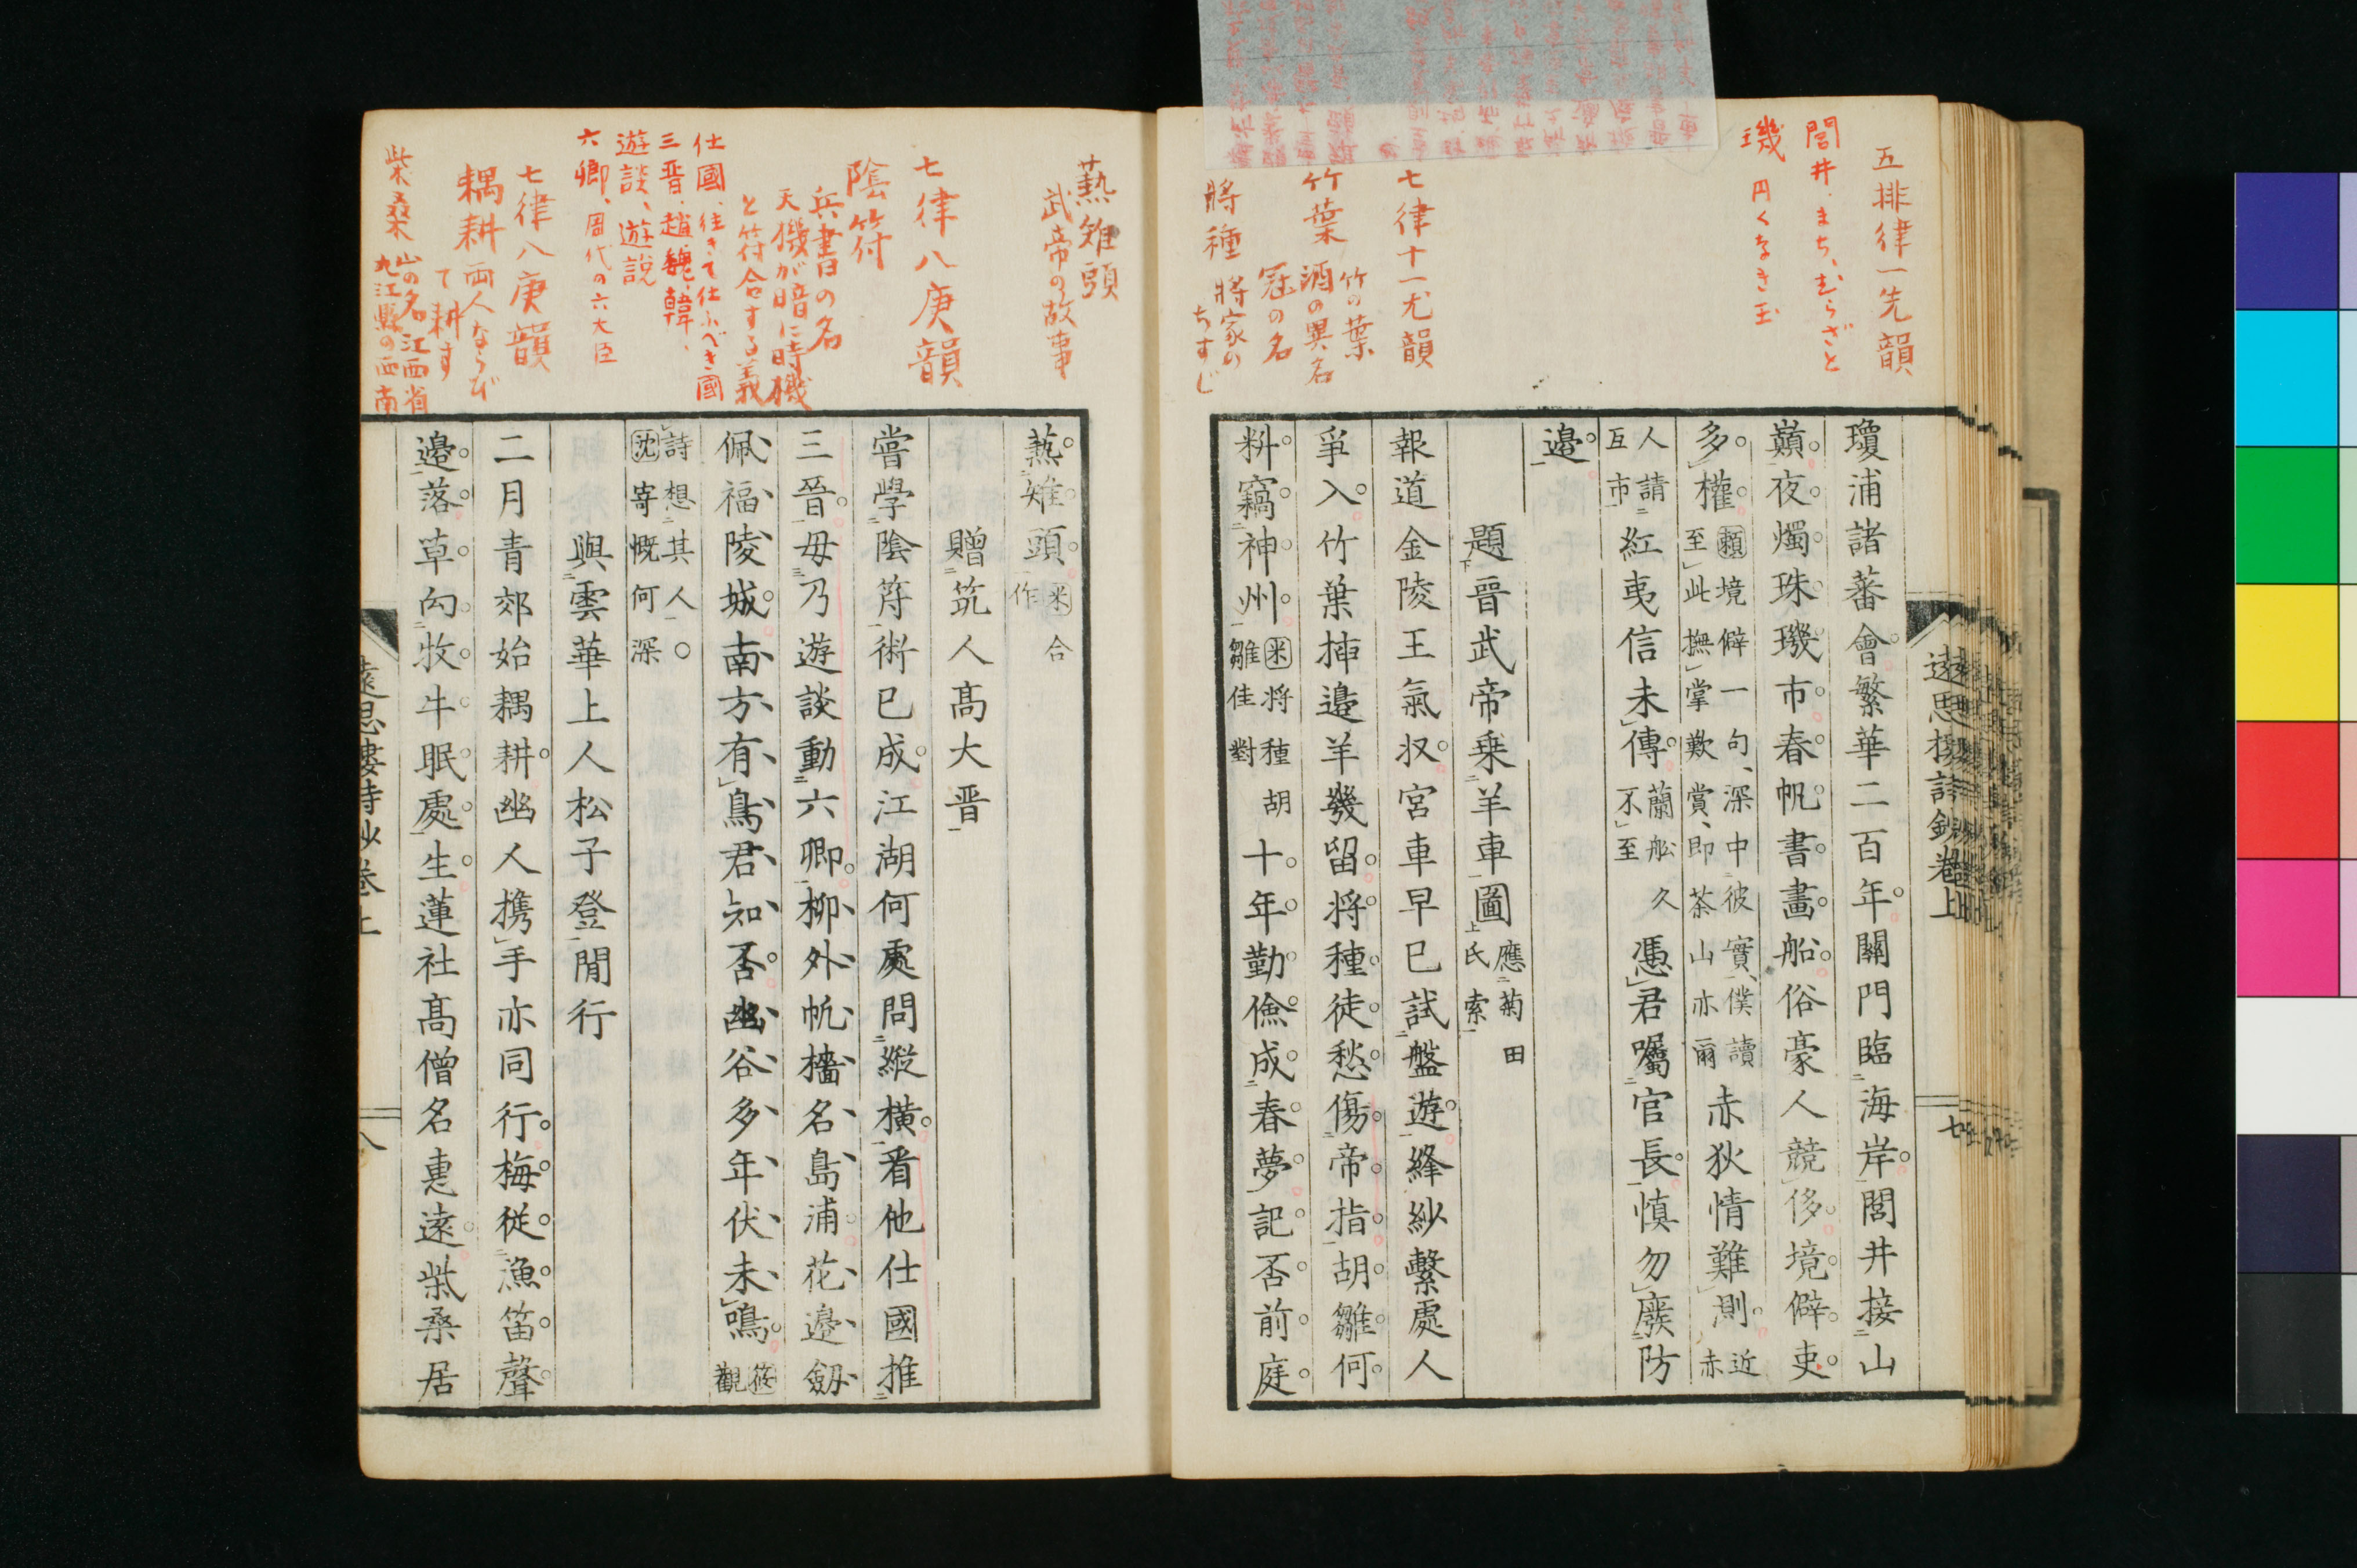 五排律一先韻
閭井、まち、むらざと
璣 円くなき玉
七律十一尤韻
竹葉 竹の葉
酒の異名
冠の名
將種 將家の
ちすじ
瓊浦諸蕃會繁華二百年關門臨海岸閭井接山
巔夜燭珠璣市春帆書畫船俗豪人競侈境僻吏
多權 頼境僻一句、深中彼實、僕讀
至此撫掌歎賞、即茶山亦爾
赤狄情難測 近
赤
人請
互市
紅夷信未傳 蘭舩久
不至
憑君囑官長慎勿廢防
邉
題晋武帝乗羊車圖 應菊田
氏索
報道金陵王氣収宮車早已試盤遊絳紗繫處人
爭入竹葉揷邉羊幾留將種徒愁傷帝指胡雛何
料竊神州 米將種胡
雛佳對
十年勤儉成春夢記否前庭
遠思樓詩鈔卷上
七
爇雉頭
武帝の故事
七律八庚韻
陰符
兵書の名
天機が暗に時機
と符合する義
仕國、往きて仕ふべき國
三晋、趙、魏、韓、
遊談、遊説
六卿、周代の六大臣
七律八庚韻
耦耕 両人ならび
て耕す
柴桑 山の名 江西省
九江縣の西南
爇雉頭 米合
作
贈筑人髙大晋
嘗學陰符術已成江湖何處問縱橫看他仕國推
三晉毋乃遊談動六卿柳外帆檣名島浦花邉劔
佩福陵城南方有鳥君知否幽谷多年伏未鳴 筱
觀
詩想其人○
沈寄慨何深
與雲華上人松子登閒行
二月青郊始耦耕幽人携手亦同行梅從漁笛聲
邉落草向牧牛眠處生蓮社髙僧名惠遠柴桑居
遠思樓詩鈔卷上
八